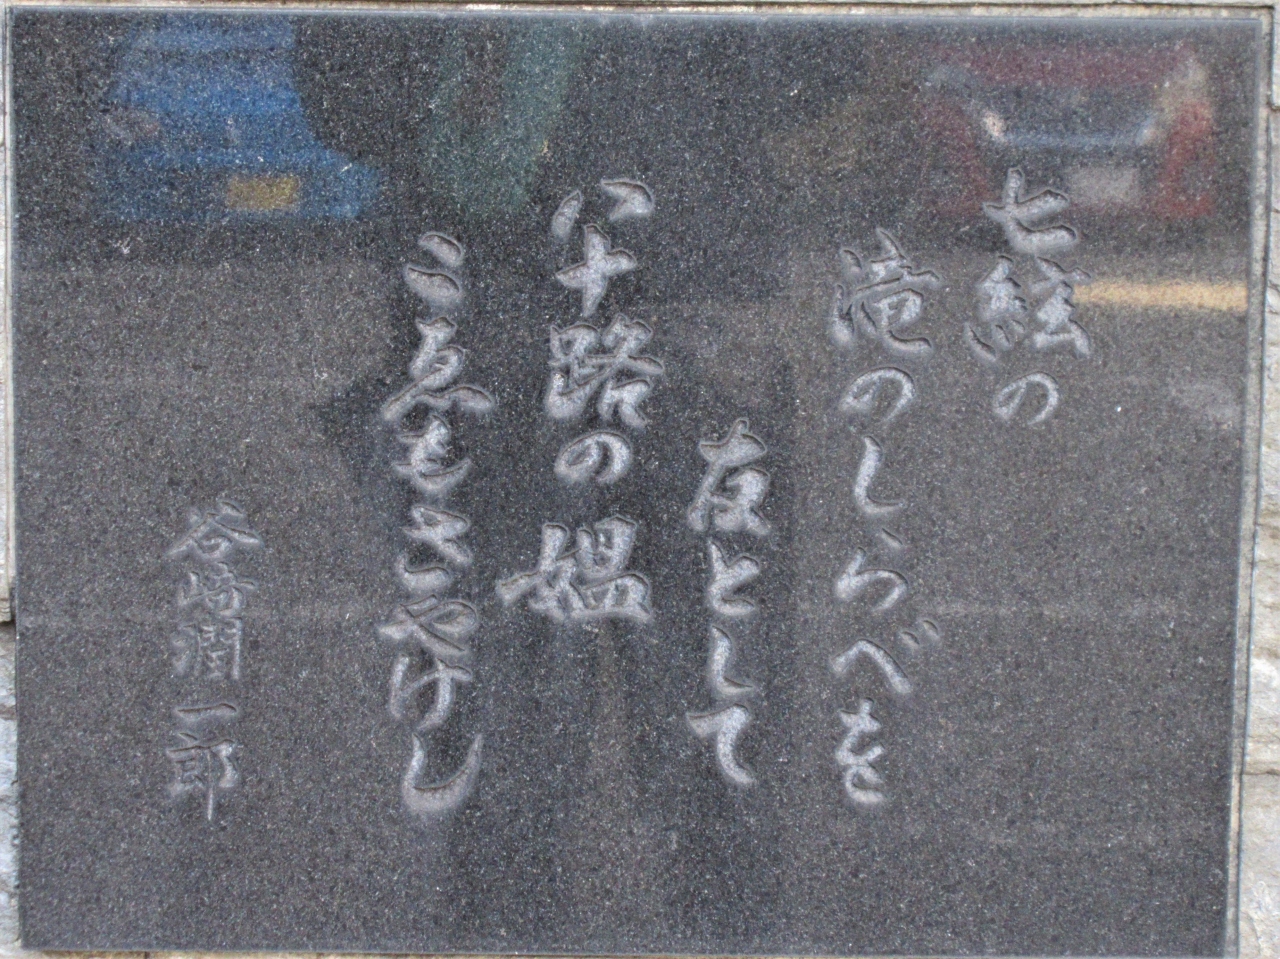 七絃の
滝のしらべを
友として
八十路の媼
こゑもさやけし
谷崎潤一郎